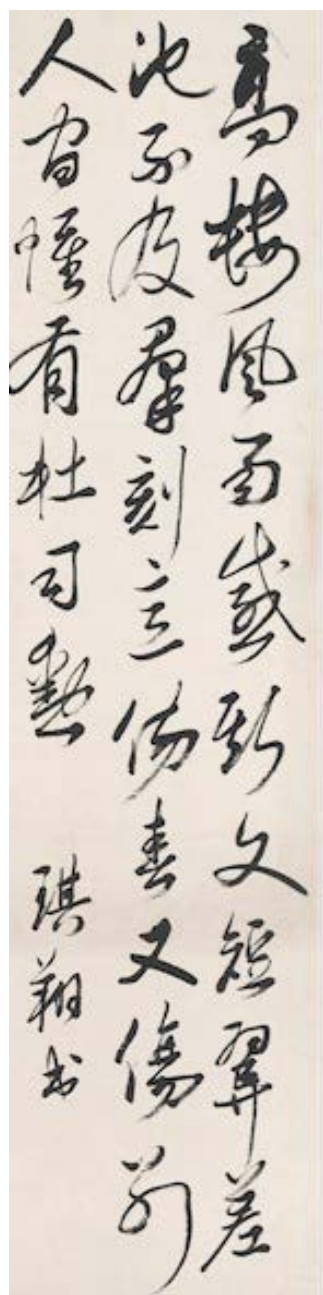 高樓風雨感斯文短翼差
池不及羣刻意傷春又傷別
人間惟有杜司勳
琪翔書